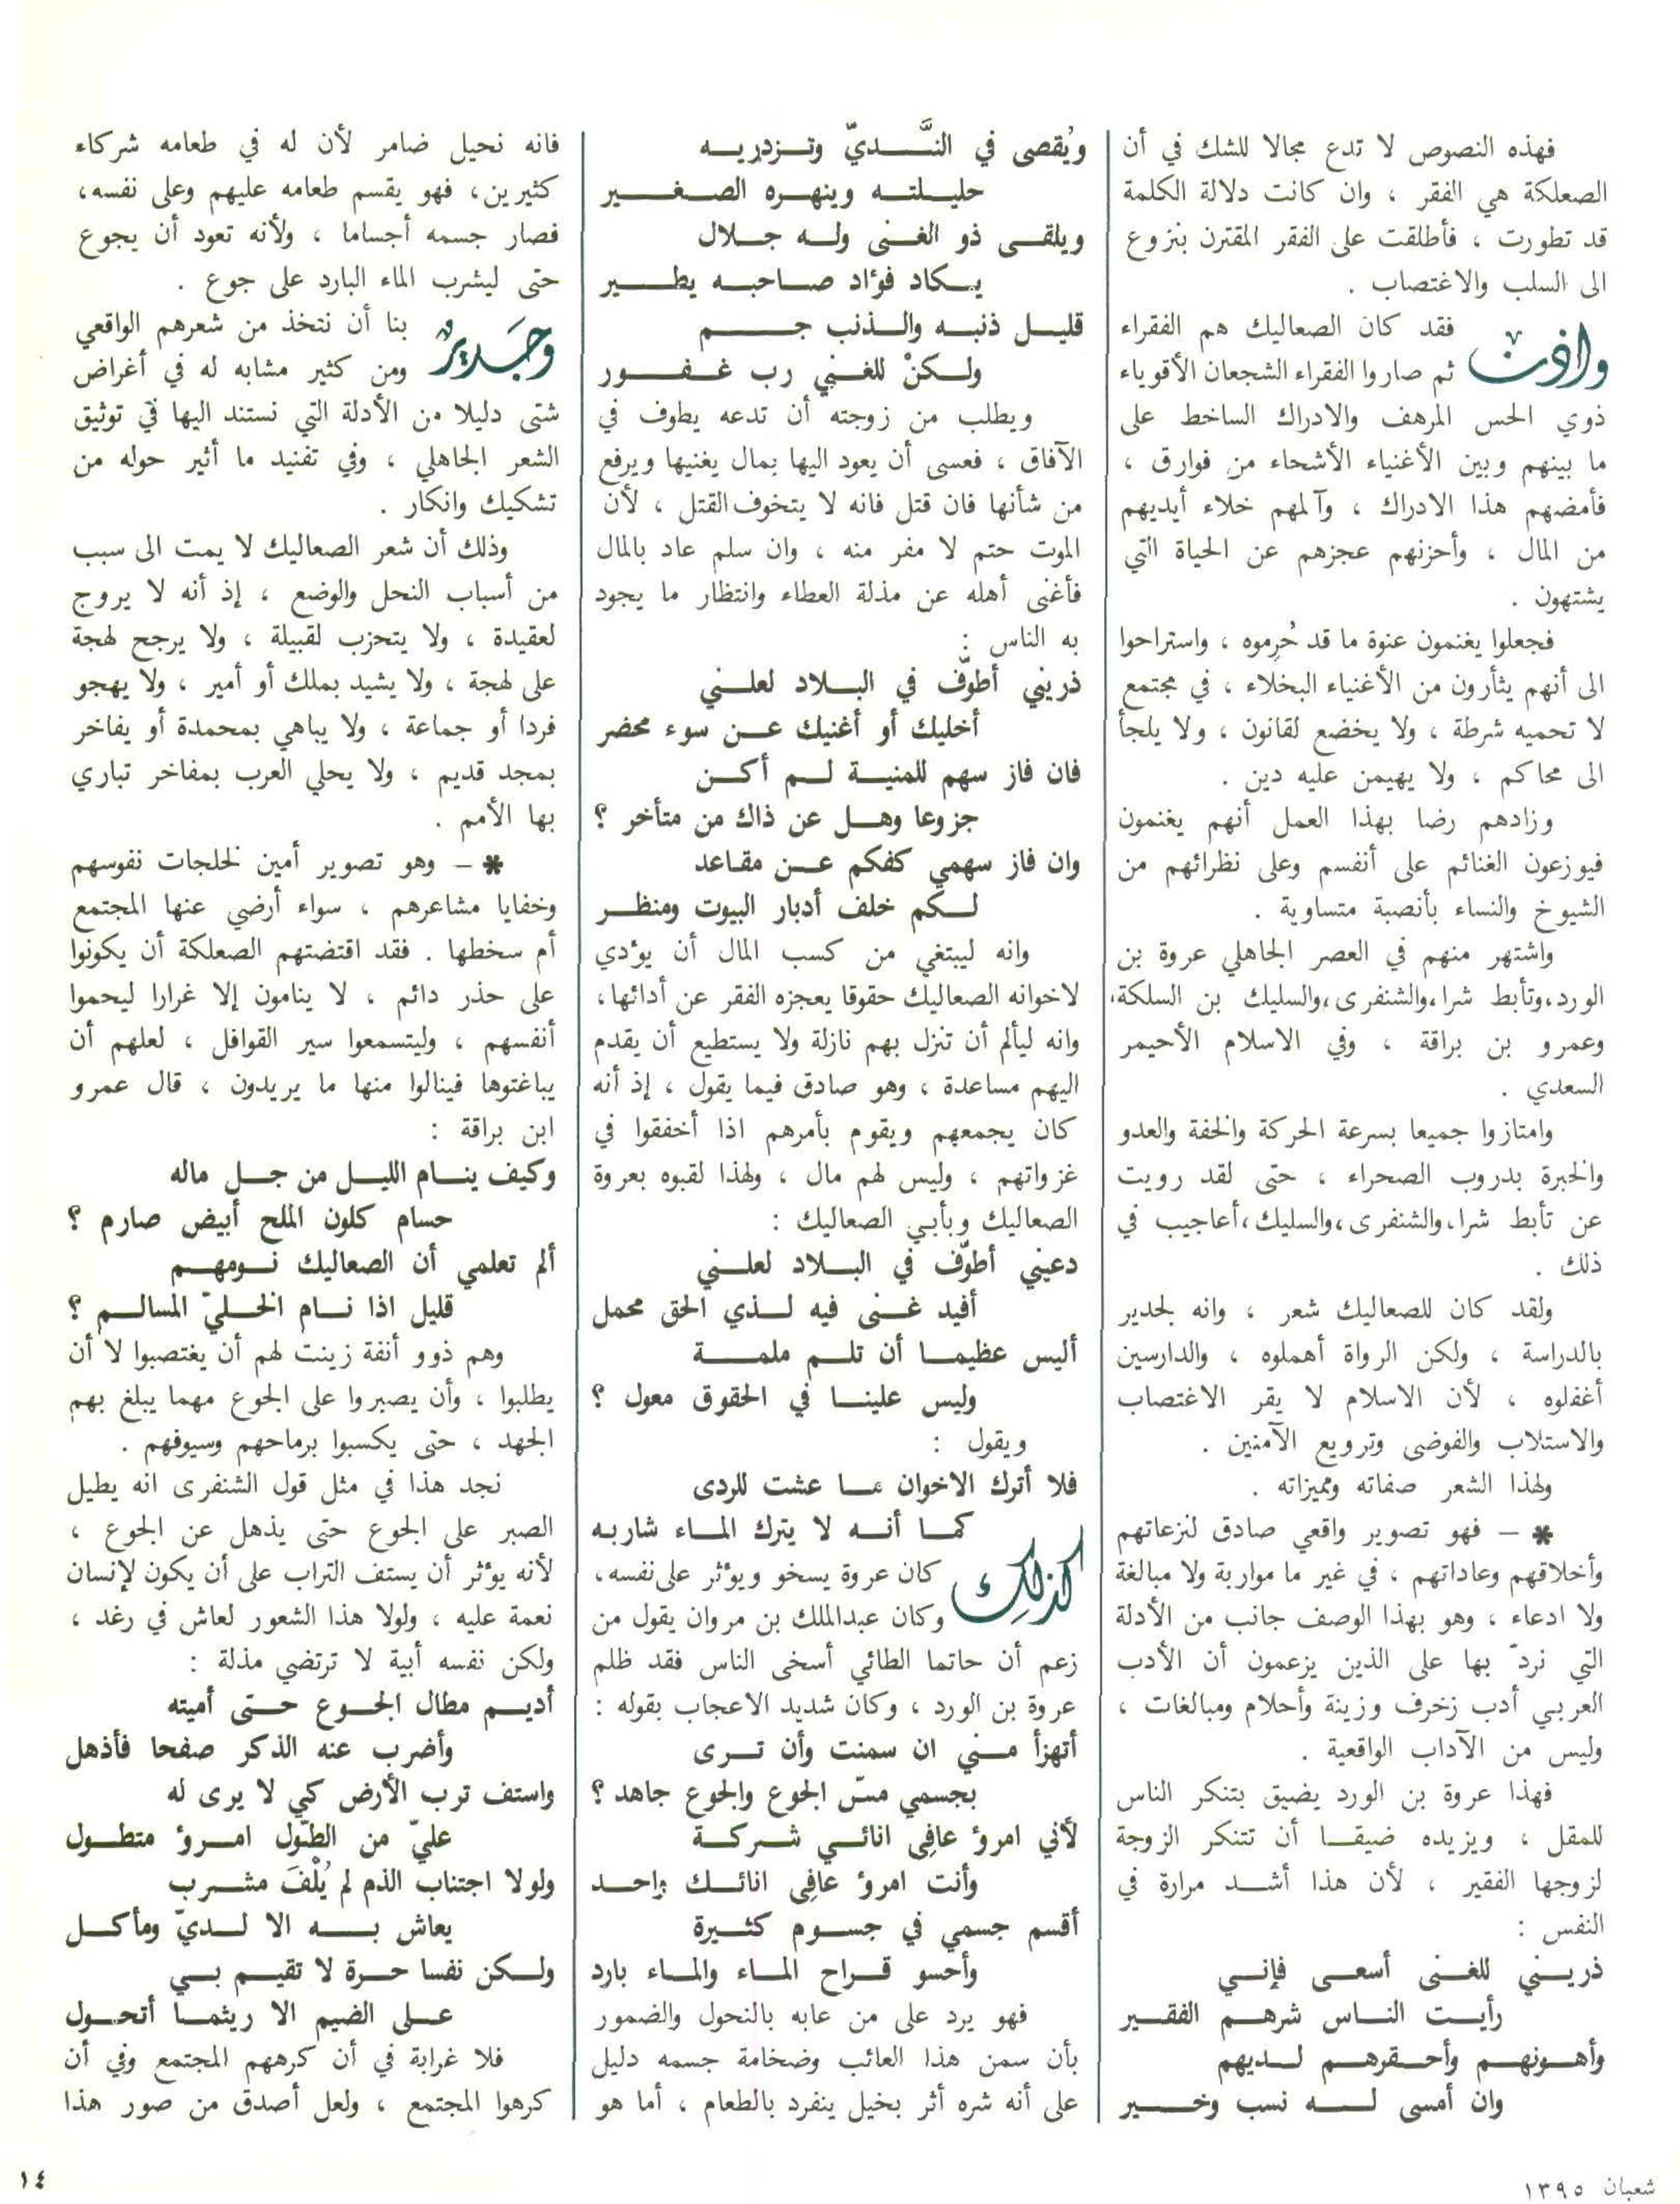 فهذه النصوص لا تدع مجالا للشك في أن
الصعلكة هي الفقر ، وان كانت دلالة الكلمة
قد تطورت ، فأطلقت على الفقر المقترن بنزوع
الى السلب والاغتصاب .
واذن فقد كان الصعاليك هم الفقراء
ثم صاروا الفقراء الشجعان الأقوياء
ذوي الحس المرهف والادراك الساخط على
ما بينهم وبين الأغنياء الأشحاء من فوارق ،
فأمضهم هذا الادراك ، وآلمهم خلاء أيديهم
من المال ، وأحزنهم عجزهم عن الحياة التي
يشتهون .
فجعلوا يغنمون عنوة ما قد حُرِموه ، واستراحوا
الى أنهم يثأرون من الأغنياء البخلاء ، في مجتمع
لا تحميه شرطة ، ولا يخضع لقانون ، ولا يلجأ
الى محاكم ، ولا يهيمن عليه دين .
وزادهم رضا بهذا العمل أنهم يغنمون
فيوزعون الغنائم على أنفسم وعلى نظرائهم من
الشيوخ والنساء بأنصبة متساوية .
واشتهر منهم في العصر الجاهلي عروة بن
الورد،وتأبط شرا،والشنفرى،والسليك بن السلكة،
وعمرو بن براقة ، وفي الاسلام الأحيمر
السعدي .
وامتازوا جميعا بسرعة الحركة والخفة والعدو
والخبرة بدروب الصحراء ، حتى لقد رويت
عن تأبط شرا،والشنفرى،والسليك،أعاجيب في
ذلك .
ولقد كان للصعاليك شعر ، وانه لجدير
بالدراسة ، ولكن الرواة أهملوه ، والدارسين
أغفلوه ، لأن الاسلام لا يقر الاغتصاب
والاستلاب والفوضى وترويع الآمنين .
ولهذا الشعر صفاته ومميزاته .
* – فهو تصوير واقعي صادق لنزعاتهم
وأخلاقهم وعاداتهم ، في غير ما مواربة ولا مبالغة
ولا ادعاء ، وهو بهذا الوصف جانب من الأدلة
التي نردّ بها على الذين يزعمون أن الأدب
العربي أدب زخرف وزينة وأحلام ومبالغات ،
وليس من الآداب الواقعية .
فهذا عروة بن الورد يضيق بتنكر الناس
للمقل ، ويزيده ضيقـا أن تتنكر الزوجة
لزوجها الفقير ، لأن هذا أشد مرارة في
النفس :
ذريني للغنى أسعى فإني
رأيت الناس شرهم الفقير
وأهونهم وأحقرهم لديهم
وان أمسى له نسب وخير
ويُقصى في النَّديّ وتزدريه
حليلته وينهره الصغير
ويلقى ذو الغنى وله جلال
يكاد فؤاد صاحبه يطير
قليل ذنبه والذنب جم
ولكنْ للغني رب غفور
ويطلب من زوجته أن تدعه يطوف في
الآفاق ، فعسى أن يعود اليها بمال يغنيها ويرفع
من شأنها فان قتل فانه لا يتخوف القتل ، لأن
الموت حتم لا مفر منه ، وان سلم عاد بالمال
فأغنى أهله عن مذلة العطاء وانتظار ما يجود
به الناس :
ذريني أطوّف في البلاد لعلني
أخليك أو أغنيك عن سوء محضر
فان فاز سهم للمنية لم أكن
جزوعا وهل عن ذاك من متأخر ؟
وان فاز سهمي كفكم عن مقاعد
لكم خلف أدبار البيوت ومنظر
وانه ليبتغي من كسب المال أن يؤدي
لاخوانه الصعاليك حقوقا يعجزه الفقر عن أدائها،
وانه ليألم أن تنزل بهم نازلة ولا يستطيع أن يقدم
اليهم مساعدة ، وهو صادق فيما يقول ، إذ أنه
كان يجمعهم ويقوم بأمرهم اذا أخفقوا في
غزواتهم ، وليس لهم مال ، ولهذا لقبوه بعروة
الصعاليك وبأبي الصعاليك :
دعيني أطوّف في البلاد لعلني
أفيد غنى فيه لذي الحق محمل
أليس عظيما أن تلم ملمة
وليس علينا في الحقوق معول ؟
ويقول :
فلا أترك الاخوان ما عشت للردى
كما أنه لا يترك الماء شاربه
كذلك كان عروة يسخو ويؤثر على نفسه،
وكان عبدالملك بن مروان يقول من
زعم أن حاتما الطائي أسخى الناس فقد ظلم
عروة بن الورد ، وكان شديد الاعجاب بقوله :
أتهزأ مني ان سمنت وأن ترى
بجسمي مسّ الجوع والجوع جاهد ؟
لأني امرؤ عافِى انائي شركة
وأنت امرؤ عافِى انائك واحد
أقسم جسمي في جسوم كثيرة
وأحسو قراح الماء والماء بارد
فهو يرد على من عابه بالنحول والضمور
بأن سمن هذا العائب وضخامة جسمه دليل
على أنه شره أثر بخيل ينفرد بالطعام ، أما هو
فانه نحيل ضامر لأن له في طعامه شركاء
كثيرين، فهو يقسم طعامه عليهم وعلى نفسه،
فصار جسمه أجساما ، ولأنه تعود أن يجوع
حتى ليشرب الماء البارد على جوع .
وجَديرٌ بنا أن نتخذ من شعرهم الواقعي
ومن كثير مشابه له في أغراض
شتى دليلا من الأدلة التي نستند اليها في توثيق
الشعر الجاهلي ، وفي تفنيد ما أثير حوله من
تشكيك وانكار .
وذلك أن شعر الصعاليك لا يمت الى سبب
من أسباب النحل والوضع ، إذ أنه لا يروج
لعقيدة ، ولا يتحزب لقبيلة ، ولا يرجح لهجة
على لهجة ، ولا يشيد بملك أو أمير ، ولا يهجو
فردا أو جماعة ، ولا يباهي بمحمدة أو يفاخر
بمجد قديم ، ولا يحلي العرب بمفاخر تباري
بها الأمم .
* – وهو تصوير أمين لخلجات نفوسهم
وخفايا مشاعرهم ، سواء أرضي عنها المجتمع
أم سخطها . فقد اقتضتهم الصعلكة أن يكونوا
على حذر دائم ، لا ينامون إلا غرارا ليحموا
أنفسهم ، وليتسمعوا سير القوافل ، لعلهم أن
يباغتوها فينالوا منها ما يريدون ، قال عمرو
ابن براقة :
وكيف ينام الليل من جل ماله
حسام كلون الملح أبيض صارم ؟
ألم تعلمي أن الصعاليك نومهم
قليل اذا نام الخليّ المسالم ؟
وهم ذوو أنفة زينت لهم أن يغتصبوا لا أن
يطلبوا ، وأن يصبروا على الجوع مهما يبلغ بهم
الجهد ، حتى يكسبوا برماحهم وسيوفهم .
نجد هذا في مثل قول الشنفرى انه يطيل
الصبر على الجوع حتى يذهل عن الجوع ،
لأنه يؤثر أن يستف التراب على أن يكون لإنسان
نعمة عليه ، ولولا هذا الشعور لعاش في رغد ،
ولكن نفسه أبية لا ترتضي مذلة :
أديم مطال الجوع حتى أميته
وأضرب عنه الذكر صفحا فأذهل
واستف ترب الأرض كي لا يرى له
عليّ من الطّول امرؤ متطول
ولولا اجتناب الذم لم يُلْفَ مشرب
يعاش به الا لديّ ومأكل
ولكن نفسا حرة لا تقيم بي
على الضيم الا ريثما أتحول
فلا غرابة في أن كرههم المجتمع وفي أن
كرهوا المجتمع ، ولعل أصدق من صور هذا
شعبان ١٣٩٥
١٤